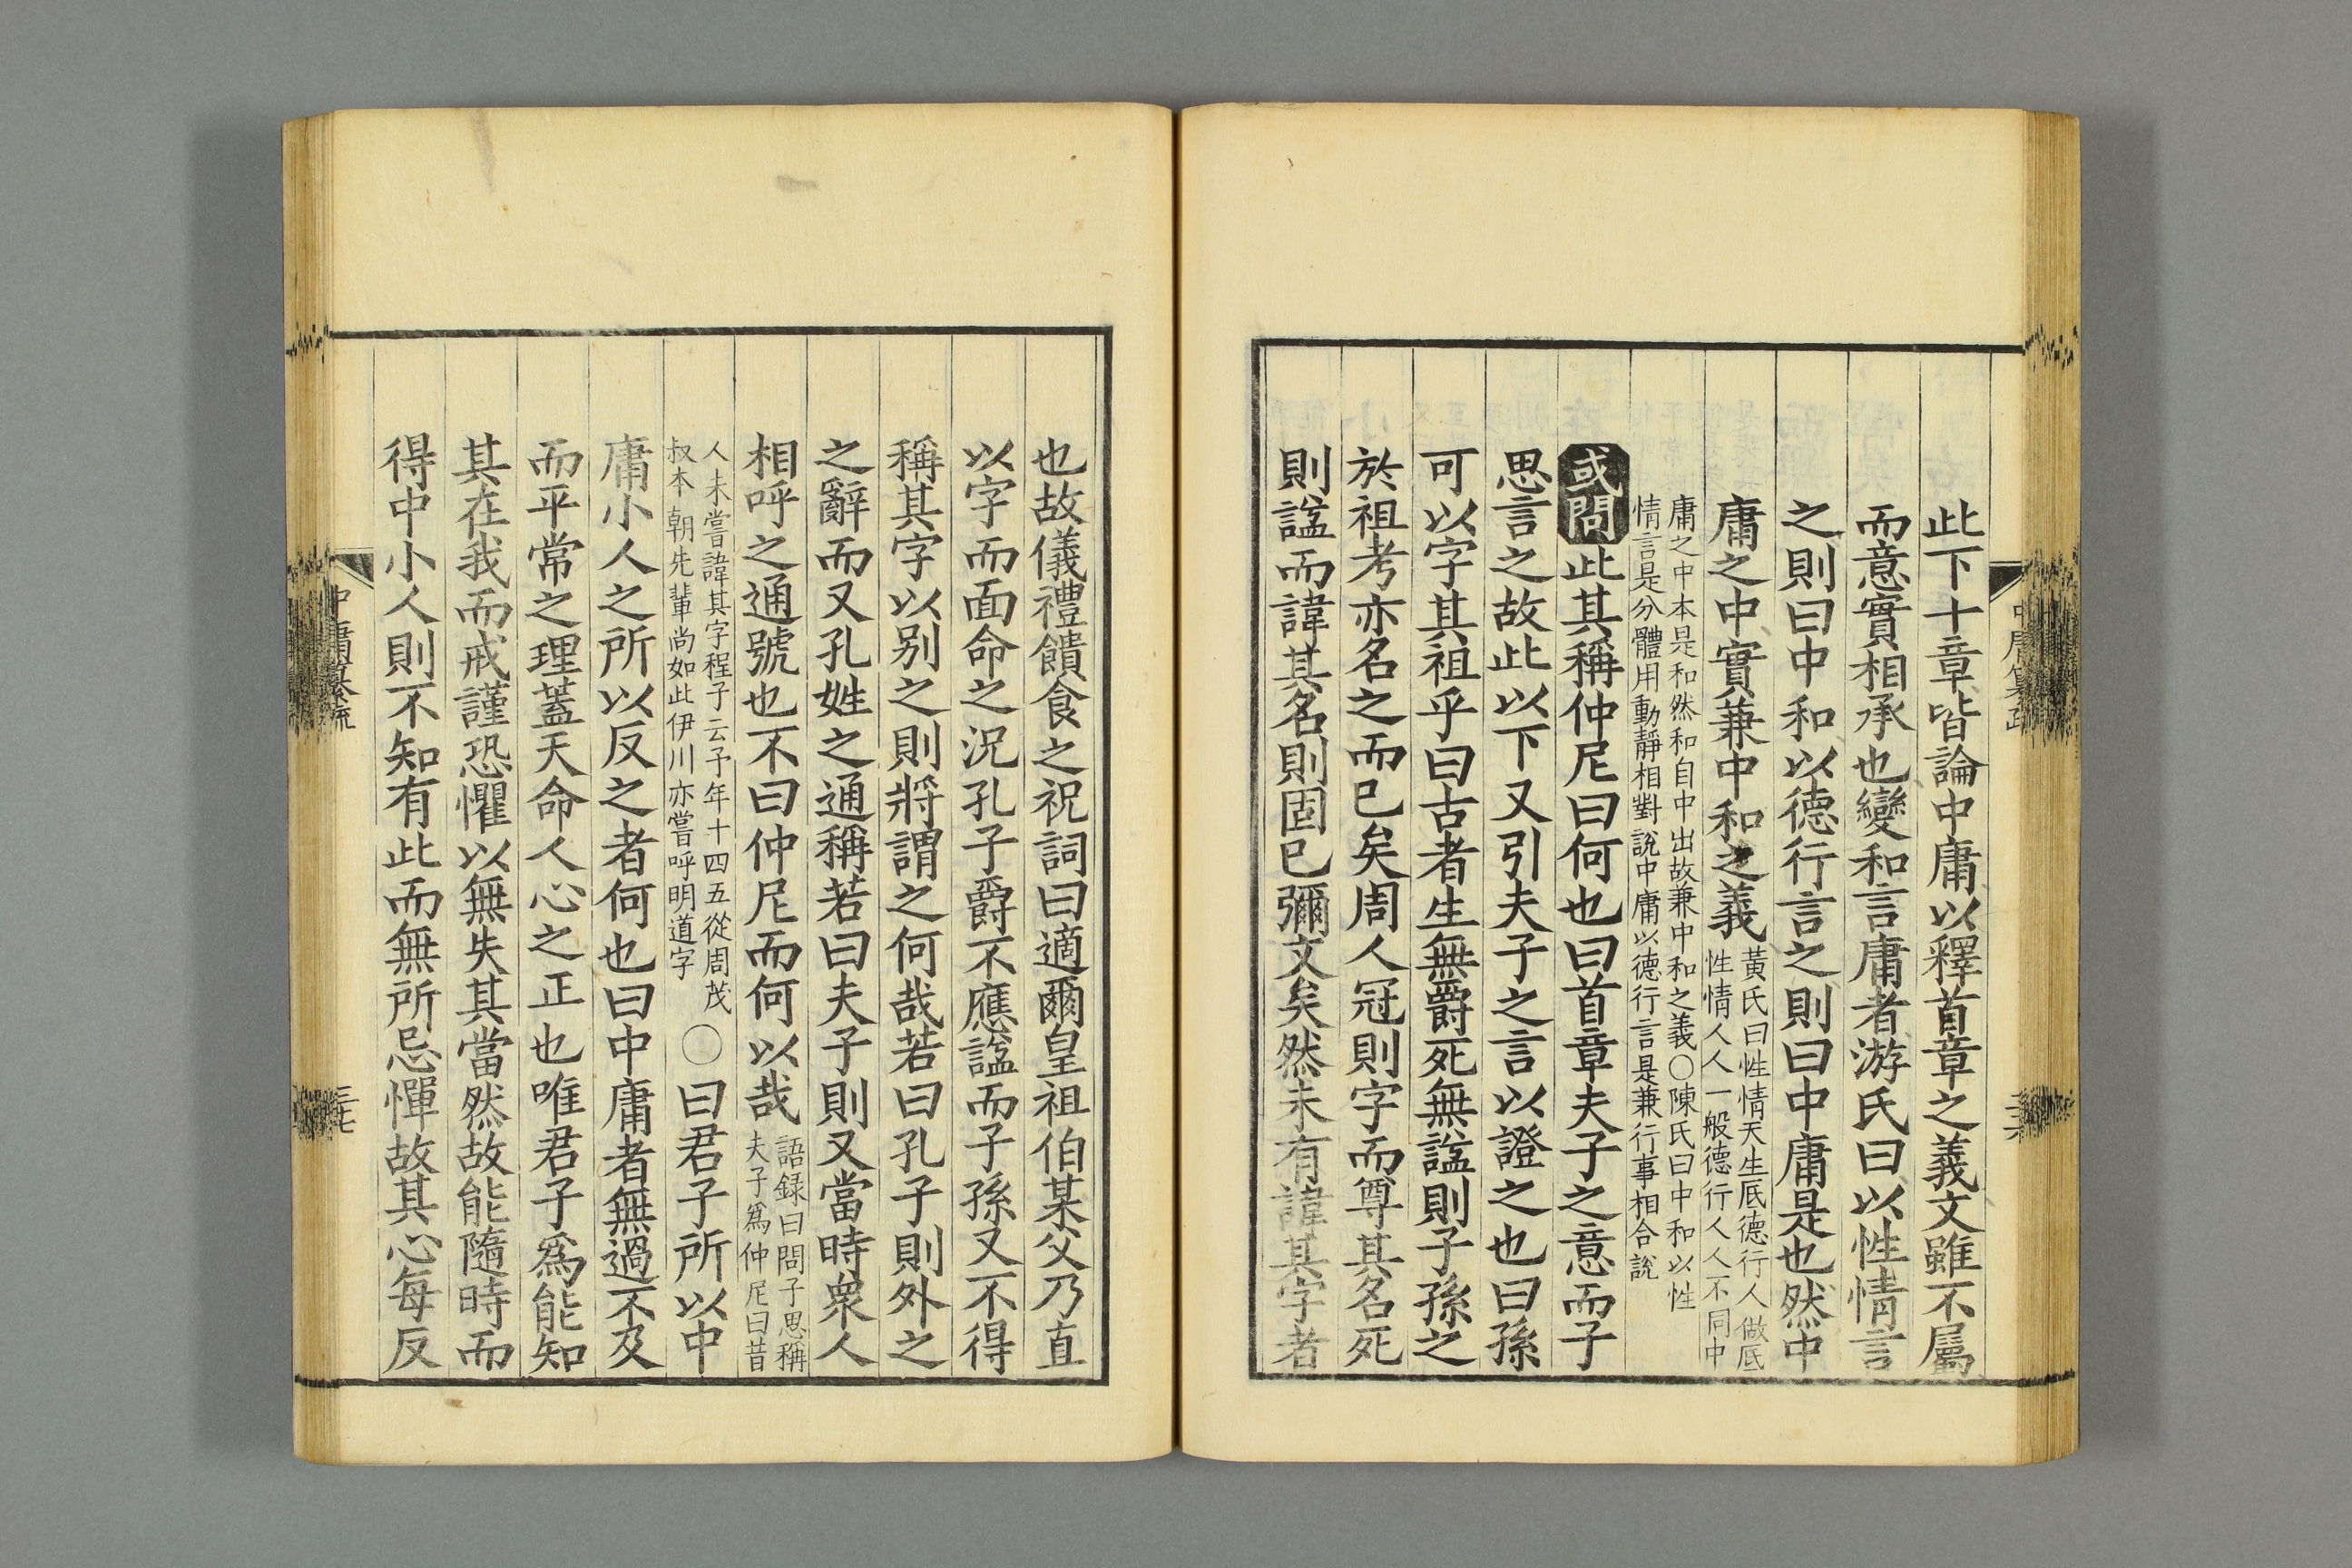 此下十章皆論中庸以釋首章之義文雖不屬
而意實相承也變和言庸者游氏曰以性情言
之則曰中和以德行言之則曰中庸是也然中
庸之中實兼中和之義黃氏曰性情天生底德行人做底
性情人人一般德行人人不同中
庸之中本是和然和自中出故兼中和之義○陳氏曰中和以性
情言是分體用動靜相對說中庸以德行言是兼行事相合說
或問此其稱仲尼曰何也曰首章夫子之意而子
思言之故此以下又引夫子之言以證之也曰孫
可以字其祖乎曰古者生無爵死無諡則子孫之
於祖考亦名之而已矣周人冠則字而尊其名死
則諡而諱其名則固已彌文矣然未有諱其字者
也故儀禮饋食之祝詞曰適爾皇祖伯某父乃直
以字而面命之況孔子爵不應諡而子孫又不得
稱其字以别之則將謂之何哉若曰孔子則外之
之辭而又孔姓之通稱若曰夫子則又當時衆人
相呼之通號也不曰仲尼而何以哉語録曰問子思稱
夫子爲仲尼曰昔
人未嘗諱其字程子云予年十四五從周茂
叔本朝先輩尚如此伊川亦嘗呼明道字
○曰君子所以中
庸小人之所以反之者何也曰中庸者無過不及
而平常之理蓋天命人心之正也唯君子爲能知
其在我而戒謹恐懼以無失其當然故能隨時而
得中小人則不知有此而無所忌憚故其心每反
中庸纂疏
三七